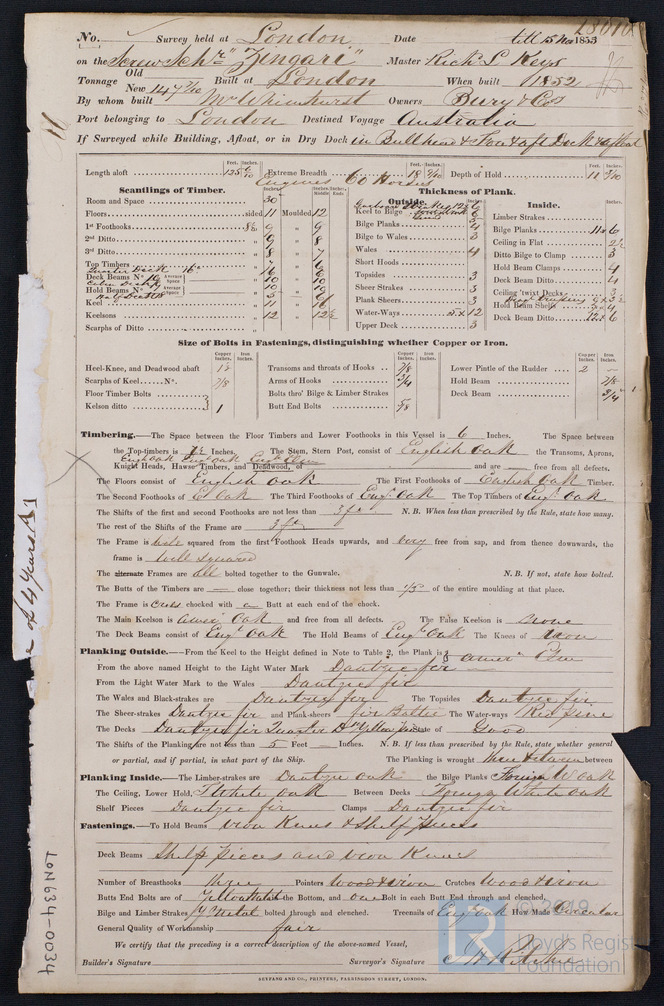 No. Survey held at London Date till 15 Nov 1853
on the Screw Schr "Zingari" Master Rich L Keys
Tonnage Old New 147 7/10 Built at London When built 1852
By whom built Mr Owners Bury & Co
Port belonging to London Destined Voyage Australia
If Surveyed while Building, Afloat, or in Dry Dock in Bullhead & Fore & aft Dock & afloat
Length aloft 125 Extreme Breadth 18 Depth of Hold 11
Engines 60 Horses
Scantlings of Timber. Thickness of Plank.
Outside. Inside.
Room and Space 30
Floors sided 11 Moulded 12
1st Foothooks 8½ 9 " 9
2nd Ditto " 9 " 8
3rd Ditto " 8 " 7
Top Timbers " 7 " 6
Quarter Deck 16
Deck Beams No. Average Space
Hold Beams No. Average Space
Keel " 11 " 16
Keelsons " 12 " 12½
Scarphs of Ditto
Keel to Bilge
Bilge Planks 4
Bilge to Wales 3
Wales 4
Short Hoods
Topsides 3
Sheer Strakes 3
Plank Sheers 3
Water-Ways 5 x 12
Upper Deck 3
Limber Strakes
Bilge Planks 6
Ceiling in Flat 2½
Ditto Bilge to Clamp 3
Hold Beam Clamps 4
Deck Beam Ditto 4
Ceiling 'twixt Decks
Hold Beam Shelf
Deck Beam Ditto 12 x 6
Size of Bolts in Fastenings, distinguishing whether Copper or Iron.
Copper Inches. Iron Inches. Copper Inches. Iron Inches. Copper Inches. Iron Inches.
Heel-Knee, and Deadwood abaft Transoms and throats of Hooks 7/8 Lower Pintle of the Rudder 2 —
Scarphs of Keel No. 7/8 Arms of Hooks 3/4 Hold Beam 7/8
Floor Timber Bolts Bolts thro' Bilge & Limber Strakes Deck Beam 3/4
Kelson ditto 1 Butt End Bolts 5/8
Timbering.—The Space between the Floor Timbers and Lower Foothooks in this Vessel is 6 Inches. The Space between
the Top-timbers is 7½ Inches. The Stem, Stern Post, consist of English Oak the Transoms, Aprons,
Eng Oak Eng Oak Engh Elm
Knight Heads, Hawse Timbers, and Deadwood, of and are — free from all defects.
The Floors consist of English Oak The First Foothooks of English Oak Timber.
The Second Foothooks of E Oak The Third Foothooks of Engh Oak The Top Timbers of Engh Oak
The Shifts of the first and second Foothooks are not less than 3 ft N.B. When less than prescribed by the Rule, state how many.
The rest of the Shifts of the Frame are 3 ft
The Frame is well squared from the first Foothook Heads upwards, and very free from sap, and from thence downwards, the
frame is well squared
The alternate Frames are all bolted together to the Gunwale. N.B. If not, state how bolted.
The Butts of the Timbers are — close together; their thickness not less than 1/3 of the entire moulding at that place.
The Frame is cross chocked with a Butt at each end of the chock.
The Main Keelson is Amer Oak and free from all defects. The False Keelson is none
The Deck Beams consist of Engh Oak The Hold Beams of Engh Oak The Knees of iron
Planking Outside.—From the Keel to the Height defined in Note to Table 2, the Plank is Amer Elm
From the above named Height to the Light Water Mark Dantzic fir
From the Light Water Mark to the Wales Dantzic fir
The Wales and Black-strakes are Dantzic fir The Topsides Dantzic fir
The Sheer-strakes Dantzic fir and Plank-sheers fir Baltic The Water-ways Red Pine
The Decks Dantzic fir Quarter Dk Yellow Pine State of Good
The Shifts of the Planking are not less than 5 Feet — Inches. N.B. If less than prescribed by the Rule, state whether general
or partial, and if partial, in what part of the Ship. The Planking is wrought between
Planking Inside.—The Limber-strakes are Dantzic oak the Bilge Planks Foreign W Oak
The Ceiling, Lower Hold, F White Oak Between Decks Foreign White Oak
Shelf Pieces Dantzic fir Clamps Dantzic fir
Fastenings.—To Hold Beams Iron Knees & Shelf Pieces
Deck Beams Shelf Pieces and iron Knees
Number of Breasthooks three Pointers Wood & iron Crutches Wood & iron
Butts End Bolts are of Yellow Metal the Bottom, and one Bolt in each Butt End through and clenched.
Bilge and Limber Strakes Y Metal bolted through and clenched. Treenails of Eng oak How Made Circular
General Quality of Workmanship fair
We certify that the preceding is a correct description of the above-named Vessel,
Builder's Signature Surveyor's Signature
SEYFANG AND CO., PRINTERS, FARRINGDON STREET, LONDON.
of 4 Years A1
LON634-0034
© 2019
LR
Lloyd's Register
Foundation